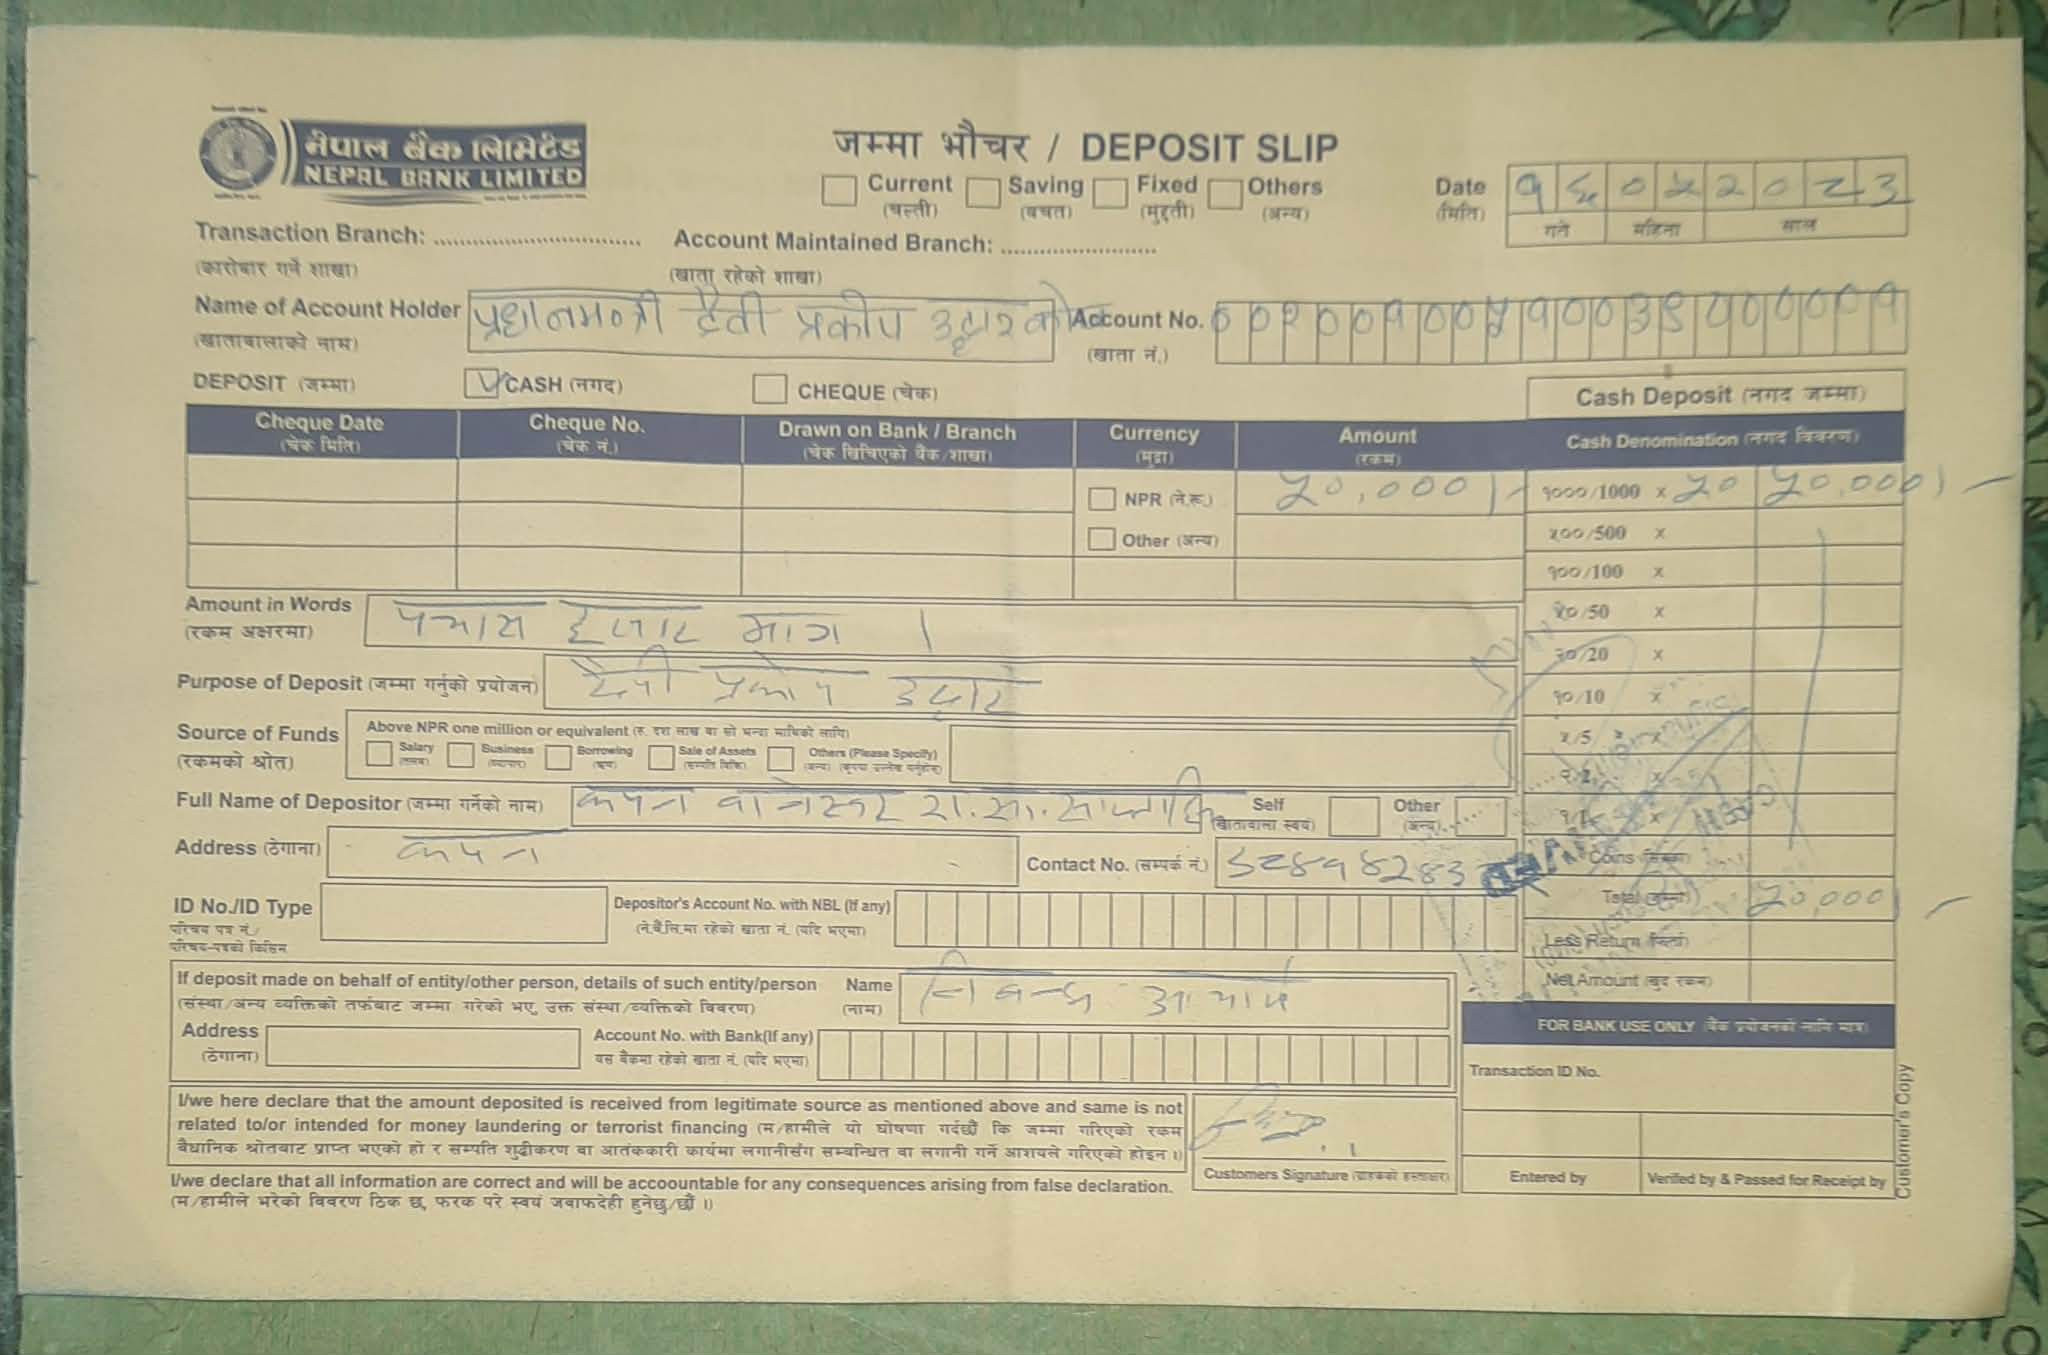 नेपाल बैंक लिमिटेड
NEPAL BANK LIMITED
जम्मा भौचर / DEPOSIT SLIP
Current (चल्ती) Saving (बचत) Fixed (मुद्दती) Others (अन्य)
Date (मिति)
गते महिना साल
Transaction Branch: ................................ Account Maintained Branch: ........................
(कारोबार गर्ने शाखा) (खाता रहेको शाखा)
Name of Account Holder प्रधानमन्त्री दैवी प्रकोप उद्धार कोष Account No.
(खातावालाको नाम) (खाता नं.)
DEPOSIT (जम्मा) CASH (नगद) CHEQUE (चेक) Cash Deposit (नगद जम्मा)
Cheque Date Cheque No. Drawn on Bank / Branch Currency Amount Cash Denomination (नगद विवरण)
(चेक मिति) (चेक नं.) (चेक खिचिएको बैंक/शाखा) (मुद्रा) (रकम)
NPR (ने.रू.) ५०,०००।- १०००/1000 x ५० ५०,०००।-
५००/500 x
Other (अन्य)
१००/100 x
Amount in Words पचास हजार मात्र । ५०/50 x
(रकम अक्षरमा)
२०/20 x
Purpose of Deposit (जम्मा गर्नुको प्रयोजन) दैवी प्रकोप उद्धार १०/10 x
Source of Funds Above NPR one million or equivalent (रु. दश लाख वा सो भन्दा माथिको लागि) ५/5 x
(रकमको श्रोत) Salary (तलब) Business (व्यापार) Borrowing (ऋण) Sale of Assets (सम्पति बिक्रि) Others (Please Specify) (अन्य) (कृपया उल्लेख गर्नुहोस)
Full Name of Depositor (जम्मा गर्नेको नाम) Self (खातावाला स्वयं) Other (अन्य)
Address (ठेगाना) कपन Contact No. (सम्पर्क नं.) Coins (सिक्का)
ID No./ID Type Depositor's Account No. with NBL (If any) Total (जम्मा) ५०,०००।-
परिचय पत्र नं./ (ने.बैं.लि.मा रहेको खाता नं. (यदि भएमा)
परिचय-पत्रको किसिम Less Return (फिर्ता)
If deposit made on behalf of entity/other person, details of such entity/person Name Net Amount (खुद रकम)
(संस्था/अन्य व्यक्तिको तर्फबाट जम्मा गरेको भए, उक्त संस्था/व्यक्तिको विवरण) (नाम)
FOR BANK USE ONLY (बैंक प्रयोजनको लागि मात्र)
Address Account No. with Bank(If any)
(ठेगाना) यस बैंकमा रहेको खाता नं. (यदि भएमा)
Transaction ID No.
I/we here declare that the amount deposited is received from legitimate source as mentioned above and same is not
related to/or intended for money laundering or terrorist financing (म/हामीले यो घोषणा गर्दछौं कि जम्मा गरिएको रकम
वैधानिक श्रोतबाट प्राप्त भएको हो र सम्पति शुद्धीकरण वा आतंककारी कार्यमा लगानीसँग सम्बन्धित वा लगानी गर्ने आशयले गरिएको होइन ।)
Customers Signature (ग्राहकको हस्ताक्षर) Entered by Verified by & Passed for Receipt by
I/we declare that all information are correct and will be accoountable for any consequences arising from false declaration.
(म/हामीले भरेको विवरण ठिक छ, फरक परे स्वयं जवाफदेही हुनेछु/छौं ।)
Customer's Copy